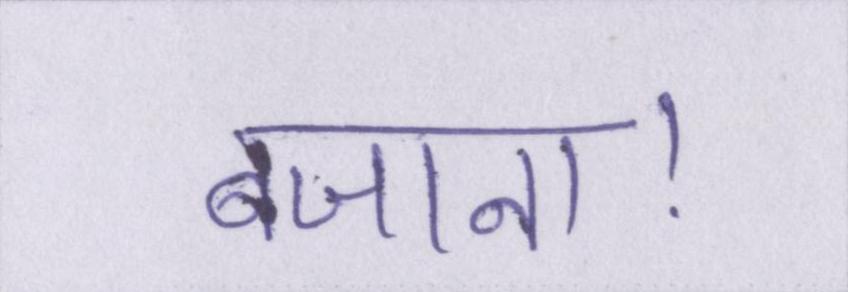 बजाना!